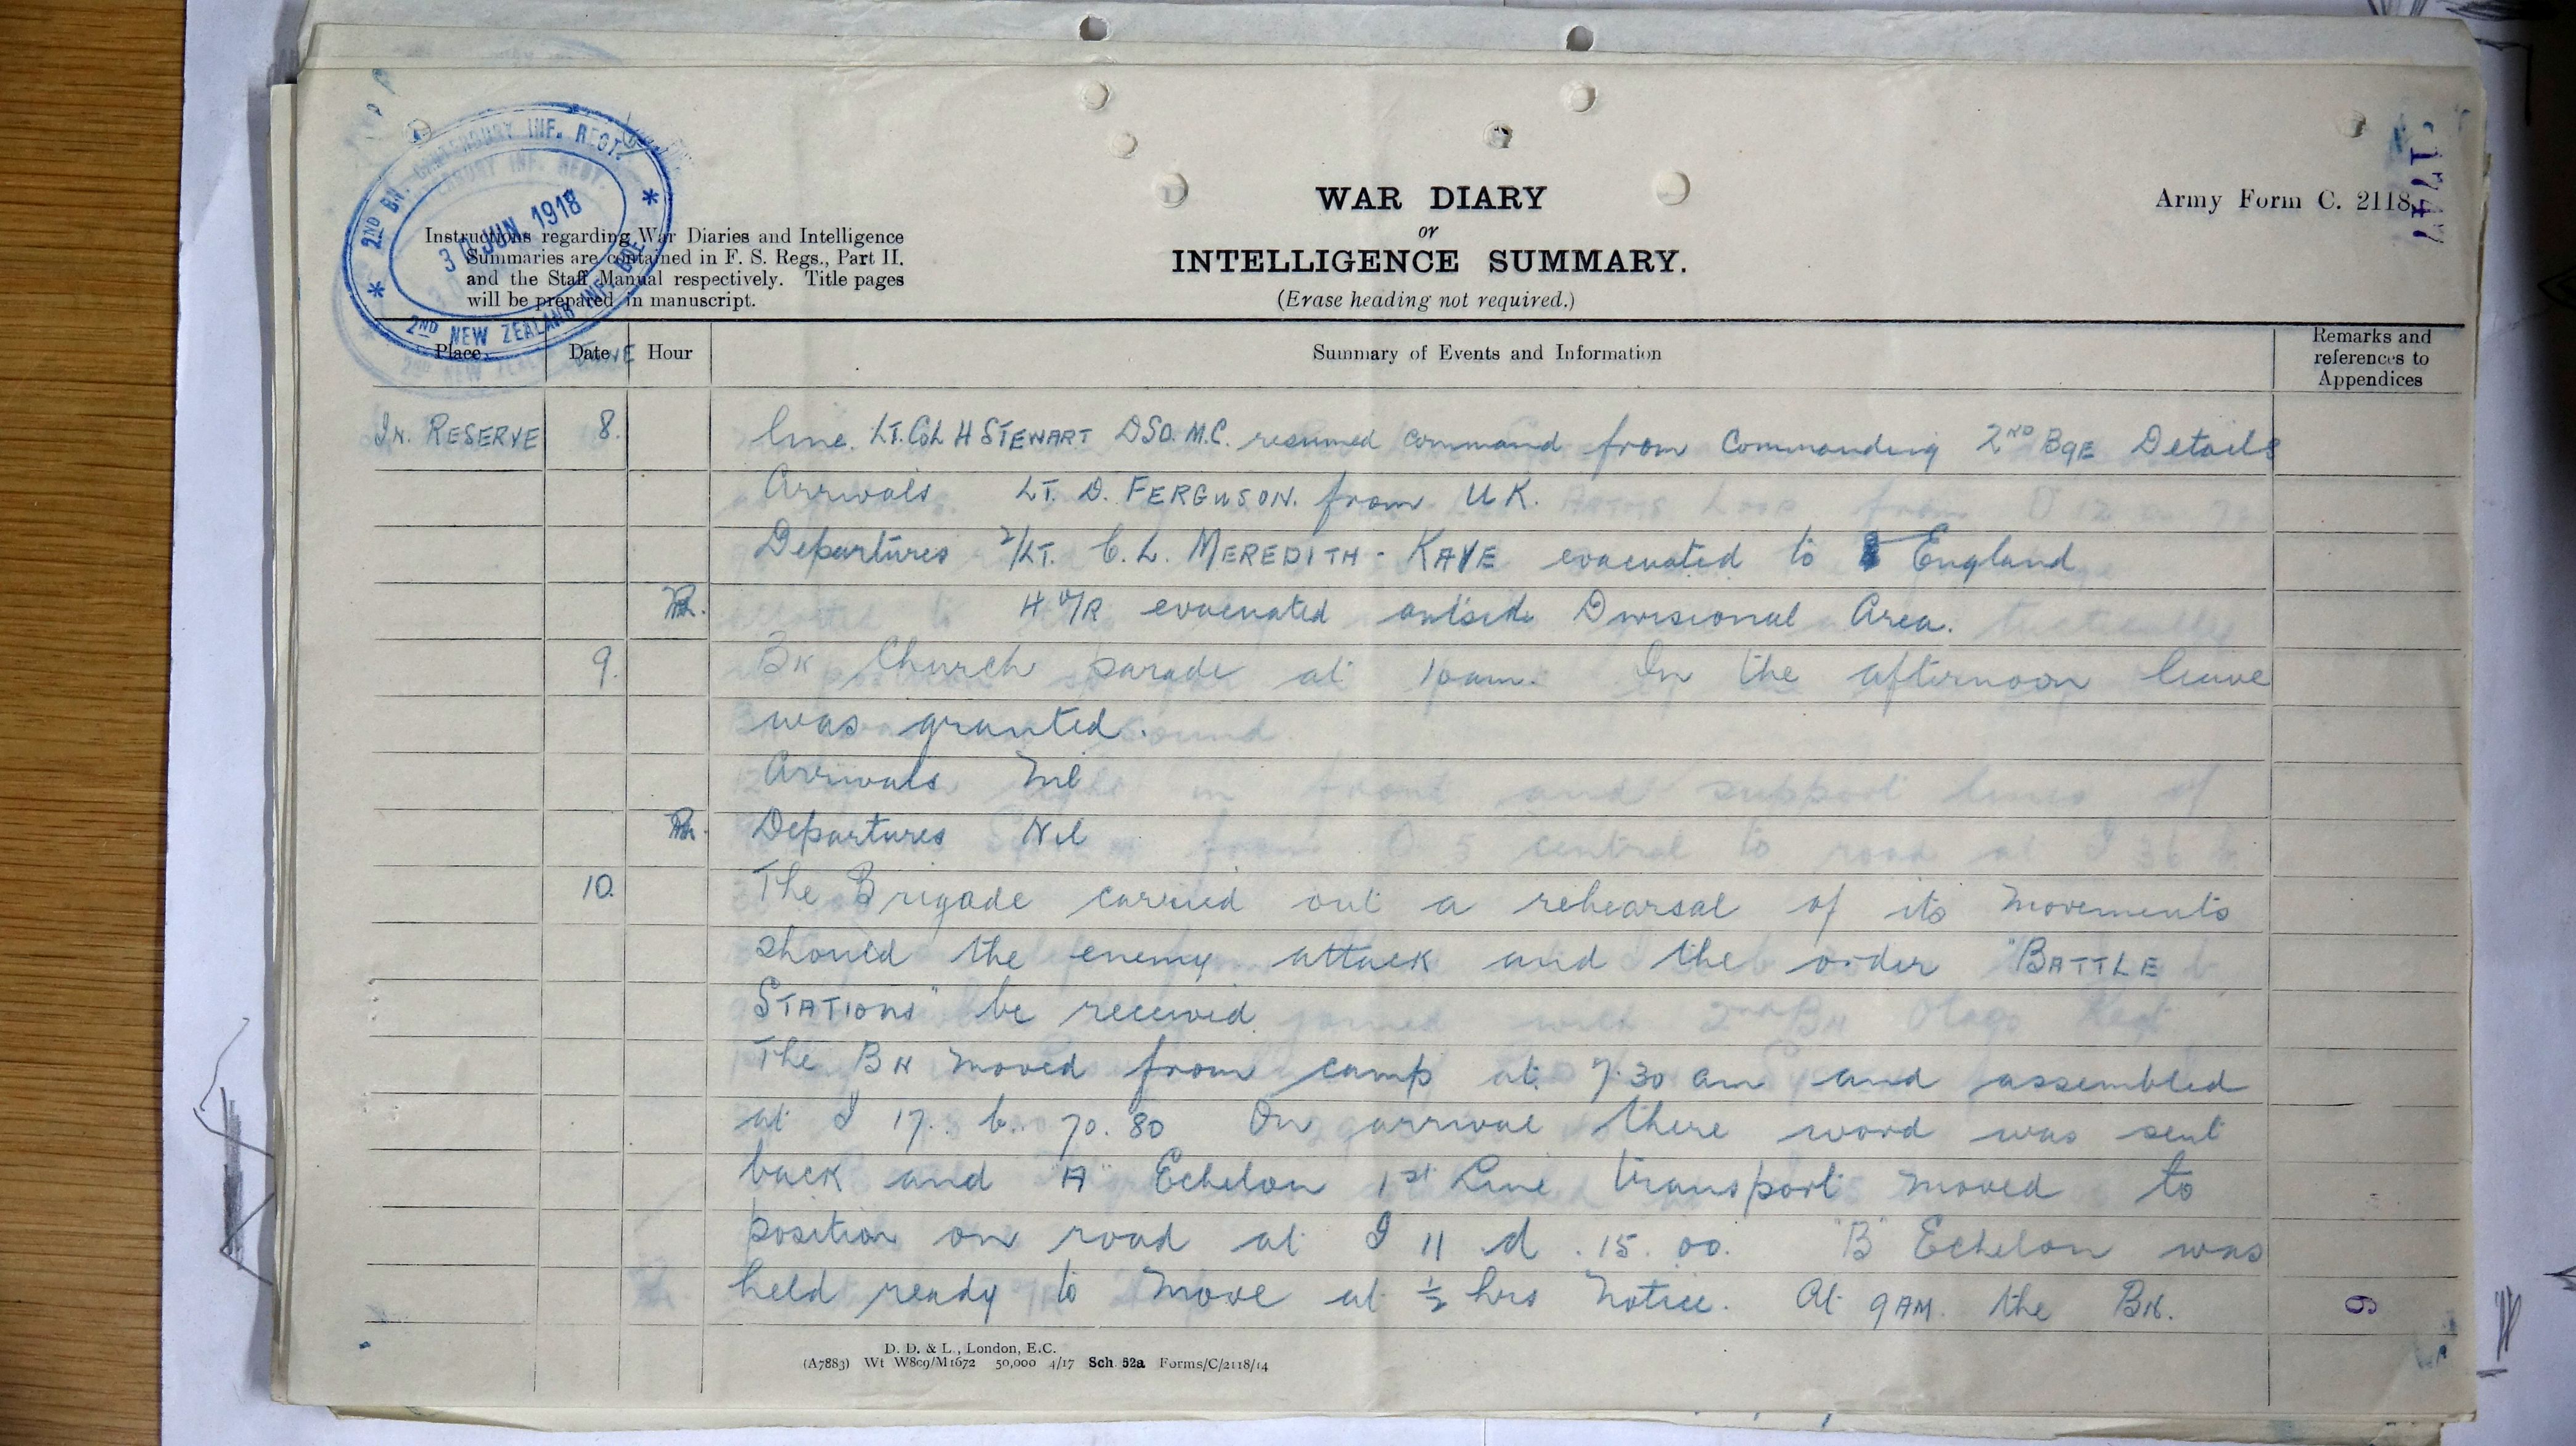 2ND BN. CANTERBURY INF. REGT.
JUN 1918
2ND NEW ZEALAND INF. BDE.
Instructions regarding War Diaries and Intelligence
Summaries are contained in F. S. Regs., Part II.
and the Staff Manual respectively. Title pages
will be prepared in manuscript.
WAR DIARY
or
INTELLIGENCE SUMMARY.
(Erase heading not required.)
Army Form C. 2118.
Place Date Hour Summary of Events and Information Remarks and
references to
Appendices
JUNE
IN. RESERVE 8. line. LT. COL H STEWART DSO. M.C. resumed command from Commanding 2ND BgE Details
Arrivals LT. D. FERGUSON. from UK.
Departures 2/LT. C. L. MEREDITH - KAYE evacuated to England
4 O/R evacuated outside Divisional Area.
9. BN Church parade at 10am. In the afternoon leave
was granted.
Arrivals Nil
Departures Nil
10. The Brigade carried out a rehearsal of its movements
should the enemy attack and the order "BATTLE
STATIONS" be received
The BN moved from camp at 7.30 am and assembled
at I 17. b. 70. 80 On arrival there word was sent
back and "A" Echelon 1st Line transport moved to
position on road at I 11 d. 15. 00. "B" Echelon was
held ready to move at ½ hrs notice. At 9AM. the BN.
D. D. & L., London, E.C.
(A7883) Wt W809/M1672 50,000 4/17 Sch. 52a Forms/C/2118/14